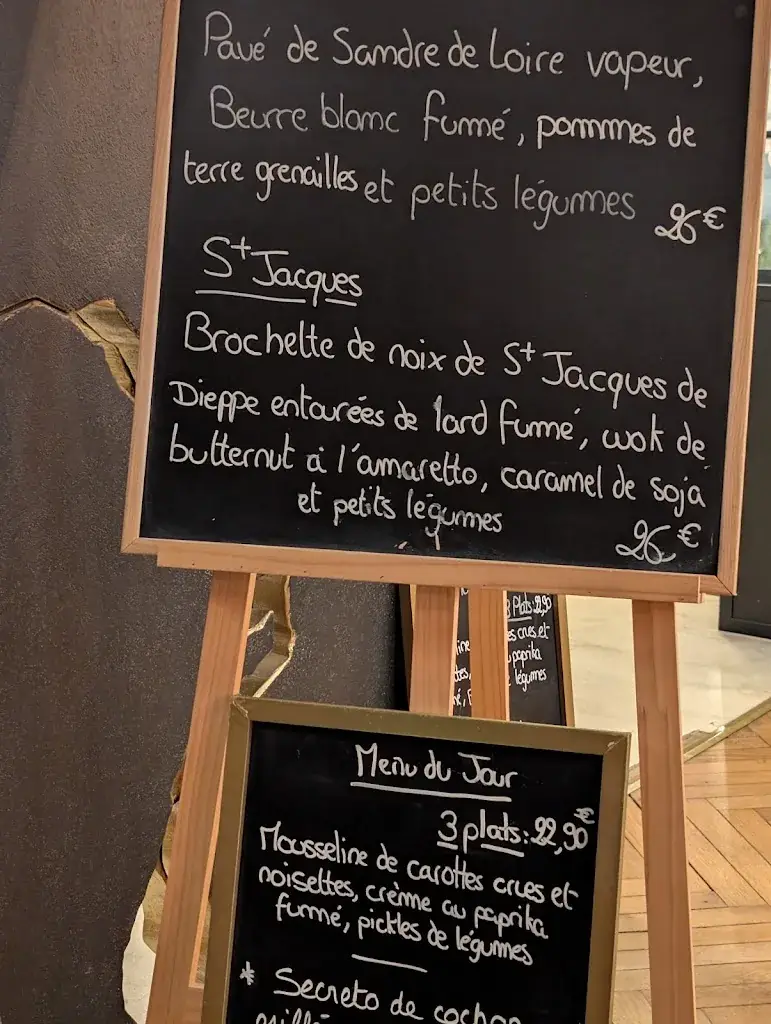 Pavé de Sandre de Loire vapeur,
Beurre blanc fumé, pommes de
terre grenailles et petits légumes
26€
St Jacques
Brochette de noix de St Jacques de
Dieppe entourées de lard fumé, wok de
butternut à l'amaretto, caramel de soja
et petits légumes
26€
3 Plats: 22,90
es crues et
paprika
légumes
Menu du Jour
3 plats: 22,90€
Mousseline de carottes crues et
noisettes, crème au paprika
fumé, pickles de légumes
* Secreto de cochon